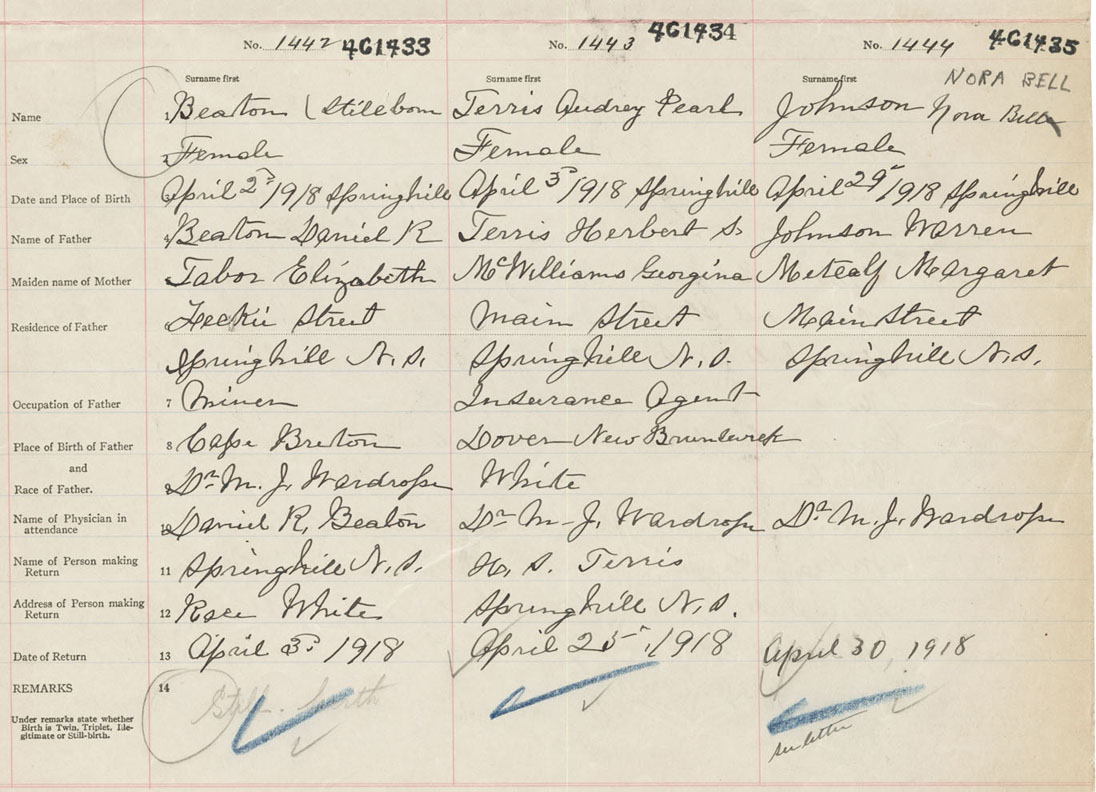 No. 1442 461433 No. 1443 461434 No. 1444 461435
Surname first Surname first Surname first NORA BELL
Name 1 Beaton (Stillborn Terris Audrey Pearl Johnson Nora Bell
Sex 2 Female Female Female
Date and Place of Birth April 2nd 1918 Springhill April 3rd 1918 Springhill April 29th 1918 Springhill
Name of Father 4 Beaton Daniel R Terris Herbert S. Johnson Warren
Maiden name of Mother Tabor Elizabeth McWilliams Georgina Metcalf Margaret
Residence of Father Street Main Street Main Street
Springhill N.S. Springhill N.S. Springhill N.S.
Occupation of Father 7 Miner Insurance Agent
Place of Birth of Father 8 Cape Breton Dover New Brunswick
and
Race of Father. 9 Dr. M. J. Wardrope White
Name of Physician in attendance 10 Daniel R. Beaton Dr M. J. Wardrope Dr M. J. Wardrope
Name of Person making Return 11 Springhill N.S. H. S. Terris
Address of Person making Return 12 Race White Springhill N.S.
Date of Return 13 April 3rd 1918 April 25th, 1918 April 30, 1918
REMARKS 14 Still-birth
Under remarks state whether
Birth is Twin, Triplet, Ille-
gitimate or Still-birth.
see letter